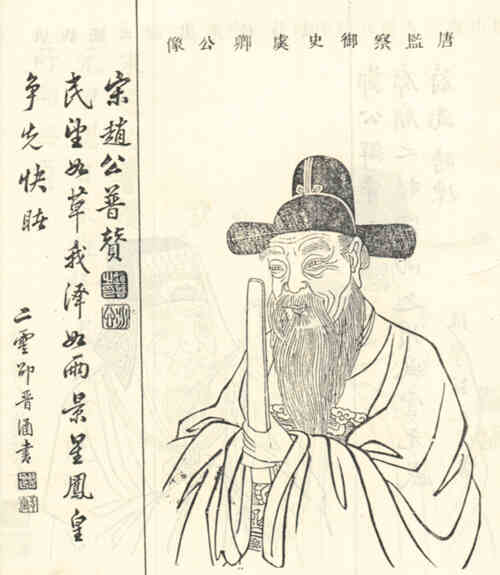 唐監察御史虞卿公像
宋趙公普贊
民望如草我澤如雨景星鳳皇
争先快睹
二雲邵晋涵書